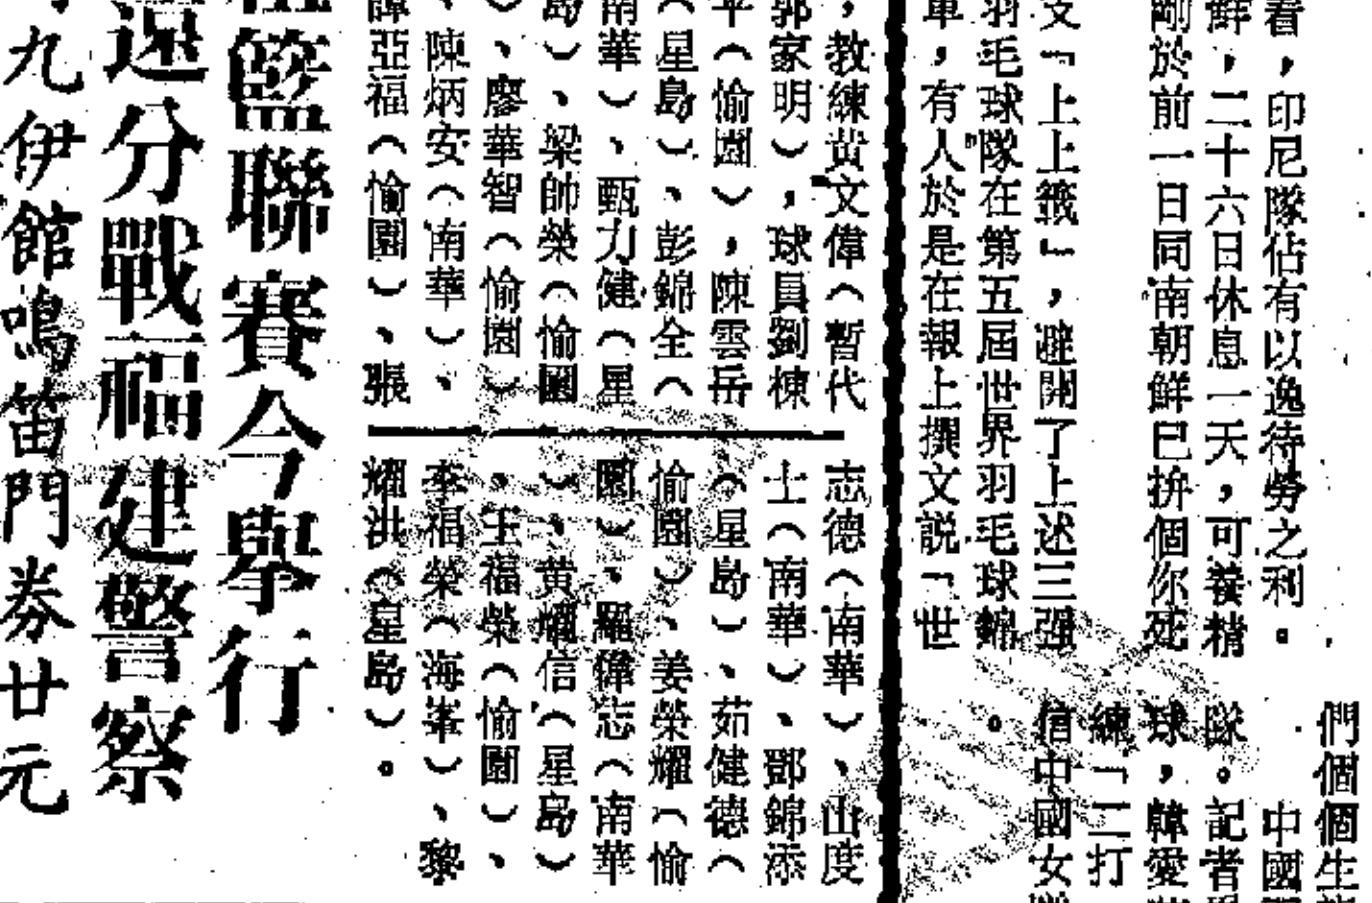 們個個生
中國
隊。記者
球，韓愛
練「二打
信中國女
看，印尼隊佔有以逸待勞之利。
鮮，二十六日休息一天，可養精
剛於前一日同南朝鮮已拚個你死
文「上上籤」，避開了上述三强
羽毛球隊在第五屆世界羽毛球錦
軍，有人於是在報上撰文説「世
，教練黄文偉（暫代
郭家明），球員劉棟
平（愉園），陳雲岳
（星島）、彭錦全（
南華）、甄力健（星
島）、梁帥榮（愉園
）、廖華智（愉園）
、陳炳安（南華）、
譚亞福（愉園）、張
志德（南華）、山度
士（南華）、鄧錦添
（星島）、茹健德（
愉園）、姜榮耀（愉
園）、羅偉志（南華
）、黄耀信（星島）
、王福榮（愉園）、
李福榮（海峯）、黎
耀洪（星島）。
籃聯賽今舉行
還分戰福建警察
九伊館鳴笛門券廿元